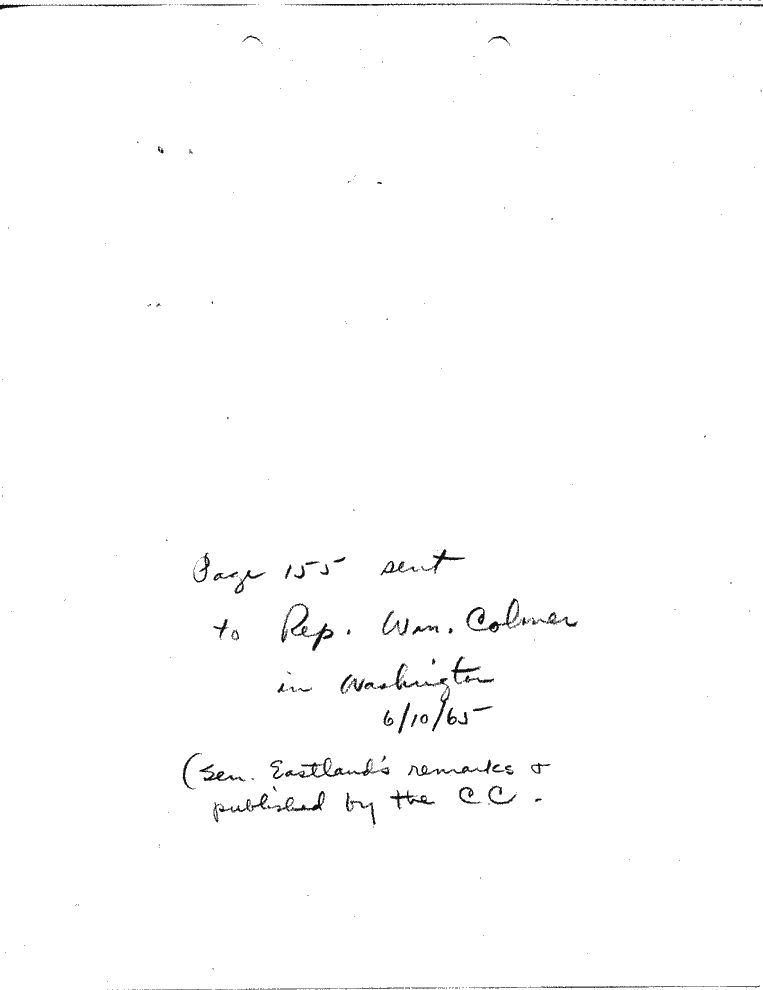 Page 155 sent
to Rep. Wm. Colmer
in Washington
6/10/65
(Sen. Eastland's remarks &
published by the CC.